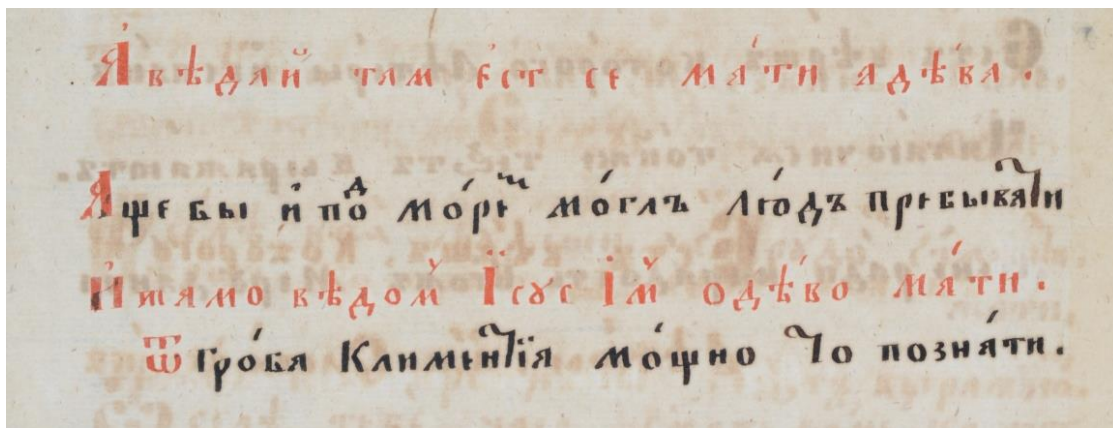 А҆ вѣдай там є҆ст се ма́ти а дѣ́ва .
А҆ще бы и҆ поⷣ мо́реⷨ мо́глъ лю́дъ пребыва́ти
И҆ тамо вѣдом І҆сꙋс І҆м о дѣ́во ма́ти .
Ѿ гро́ба Климентїа мо́щно то позна́ти .